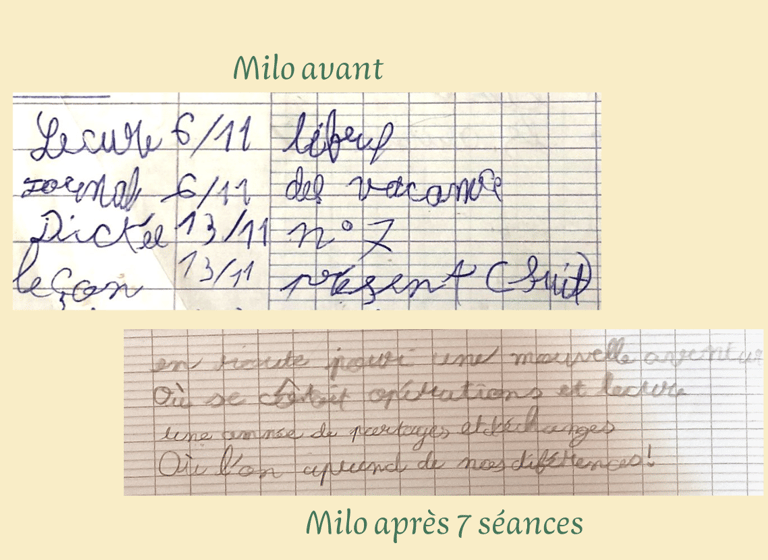 Milo avant
Lecure 6/11 libeul
Journal 6/11 des vacance
Dictée 13/11 n° 7
leçon 13/11 présent (suit)
en route pour une nouvelle aventur
Où se opérations et lecture
une année de partages et échanges
Où l'on aprend de nos diférences!
Milo après 7 séances